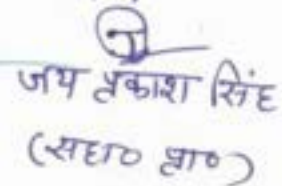 जय प्रकाश सिंह
(सहा० प्रा०)